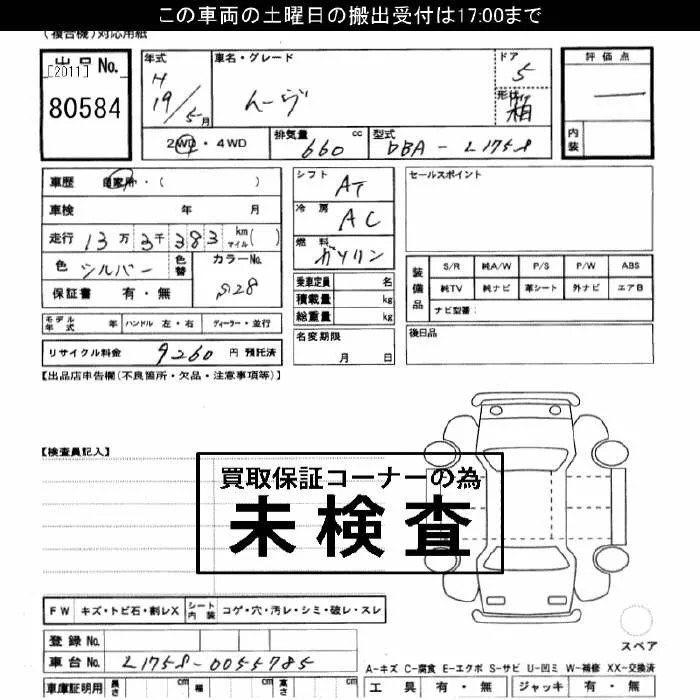 この車両の土曜日の搬出受付は17:00まで
(複合機)対応用紙
出品No.
[2011]
80584
年式
H
19/5月
車名・グレード
ムーヴ
ドア
5
形状
箱
評価点
内装
2WD・4WD
排気量
660
cc
型式
DBA-L175S
車歴 自家用・( )
車検 年 月
走行 13万3千383 km マイル( )
色 シルバー
色替
カラーNo.
S28
保証書 有・無
シフト
AT
冷房
AC
燃料
ガソリン
乗車定員 名
積載量 kg
総重量 kg
セールスポイント
装備品
S/R 純A/W P/S P/W ABS
純TV 純ナビ 革シート 外ナビ エアB
ナビ型番:
モデル年式 年 ハンドル 左・右 ディーラー・並行
名変期限
月 日
後日品
リサイクル料金 9260 円 預託済
【出品店申告欄(不良箇所・欠品・注意事項等)】
【検査員記入】
買取保証コーナーの為
未検査
FW キズ・トビ石・割レX シート内装 コゲ・穴・汚レ・シミ・破レ・スレ
登録No.
車台No. L175S-0055785
スペア
A-キズ C-腐食 E-エクボ S-サビ U-凹ミ W-補修 XX-交換済
車庫証明用 長さ cm 幅 cm 高さ cm
工具 有・無 ジャッキ 有・無